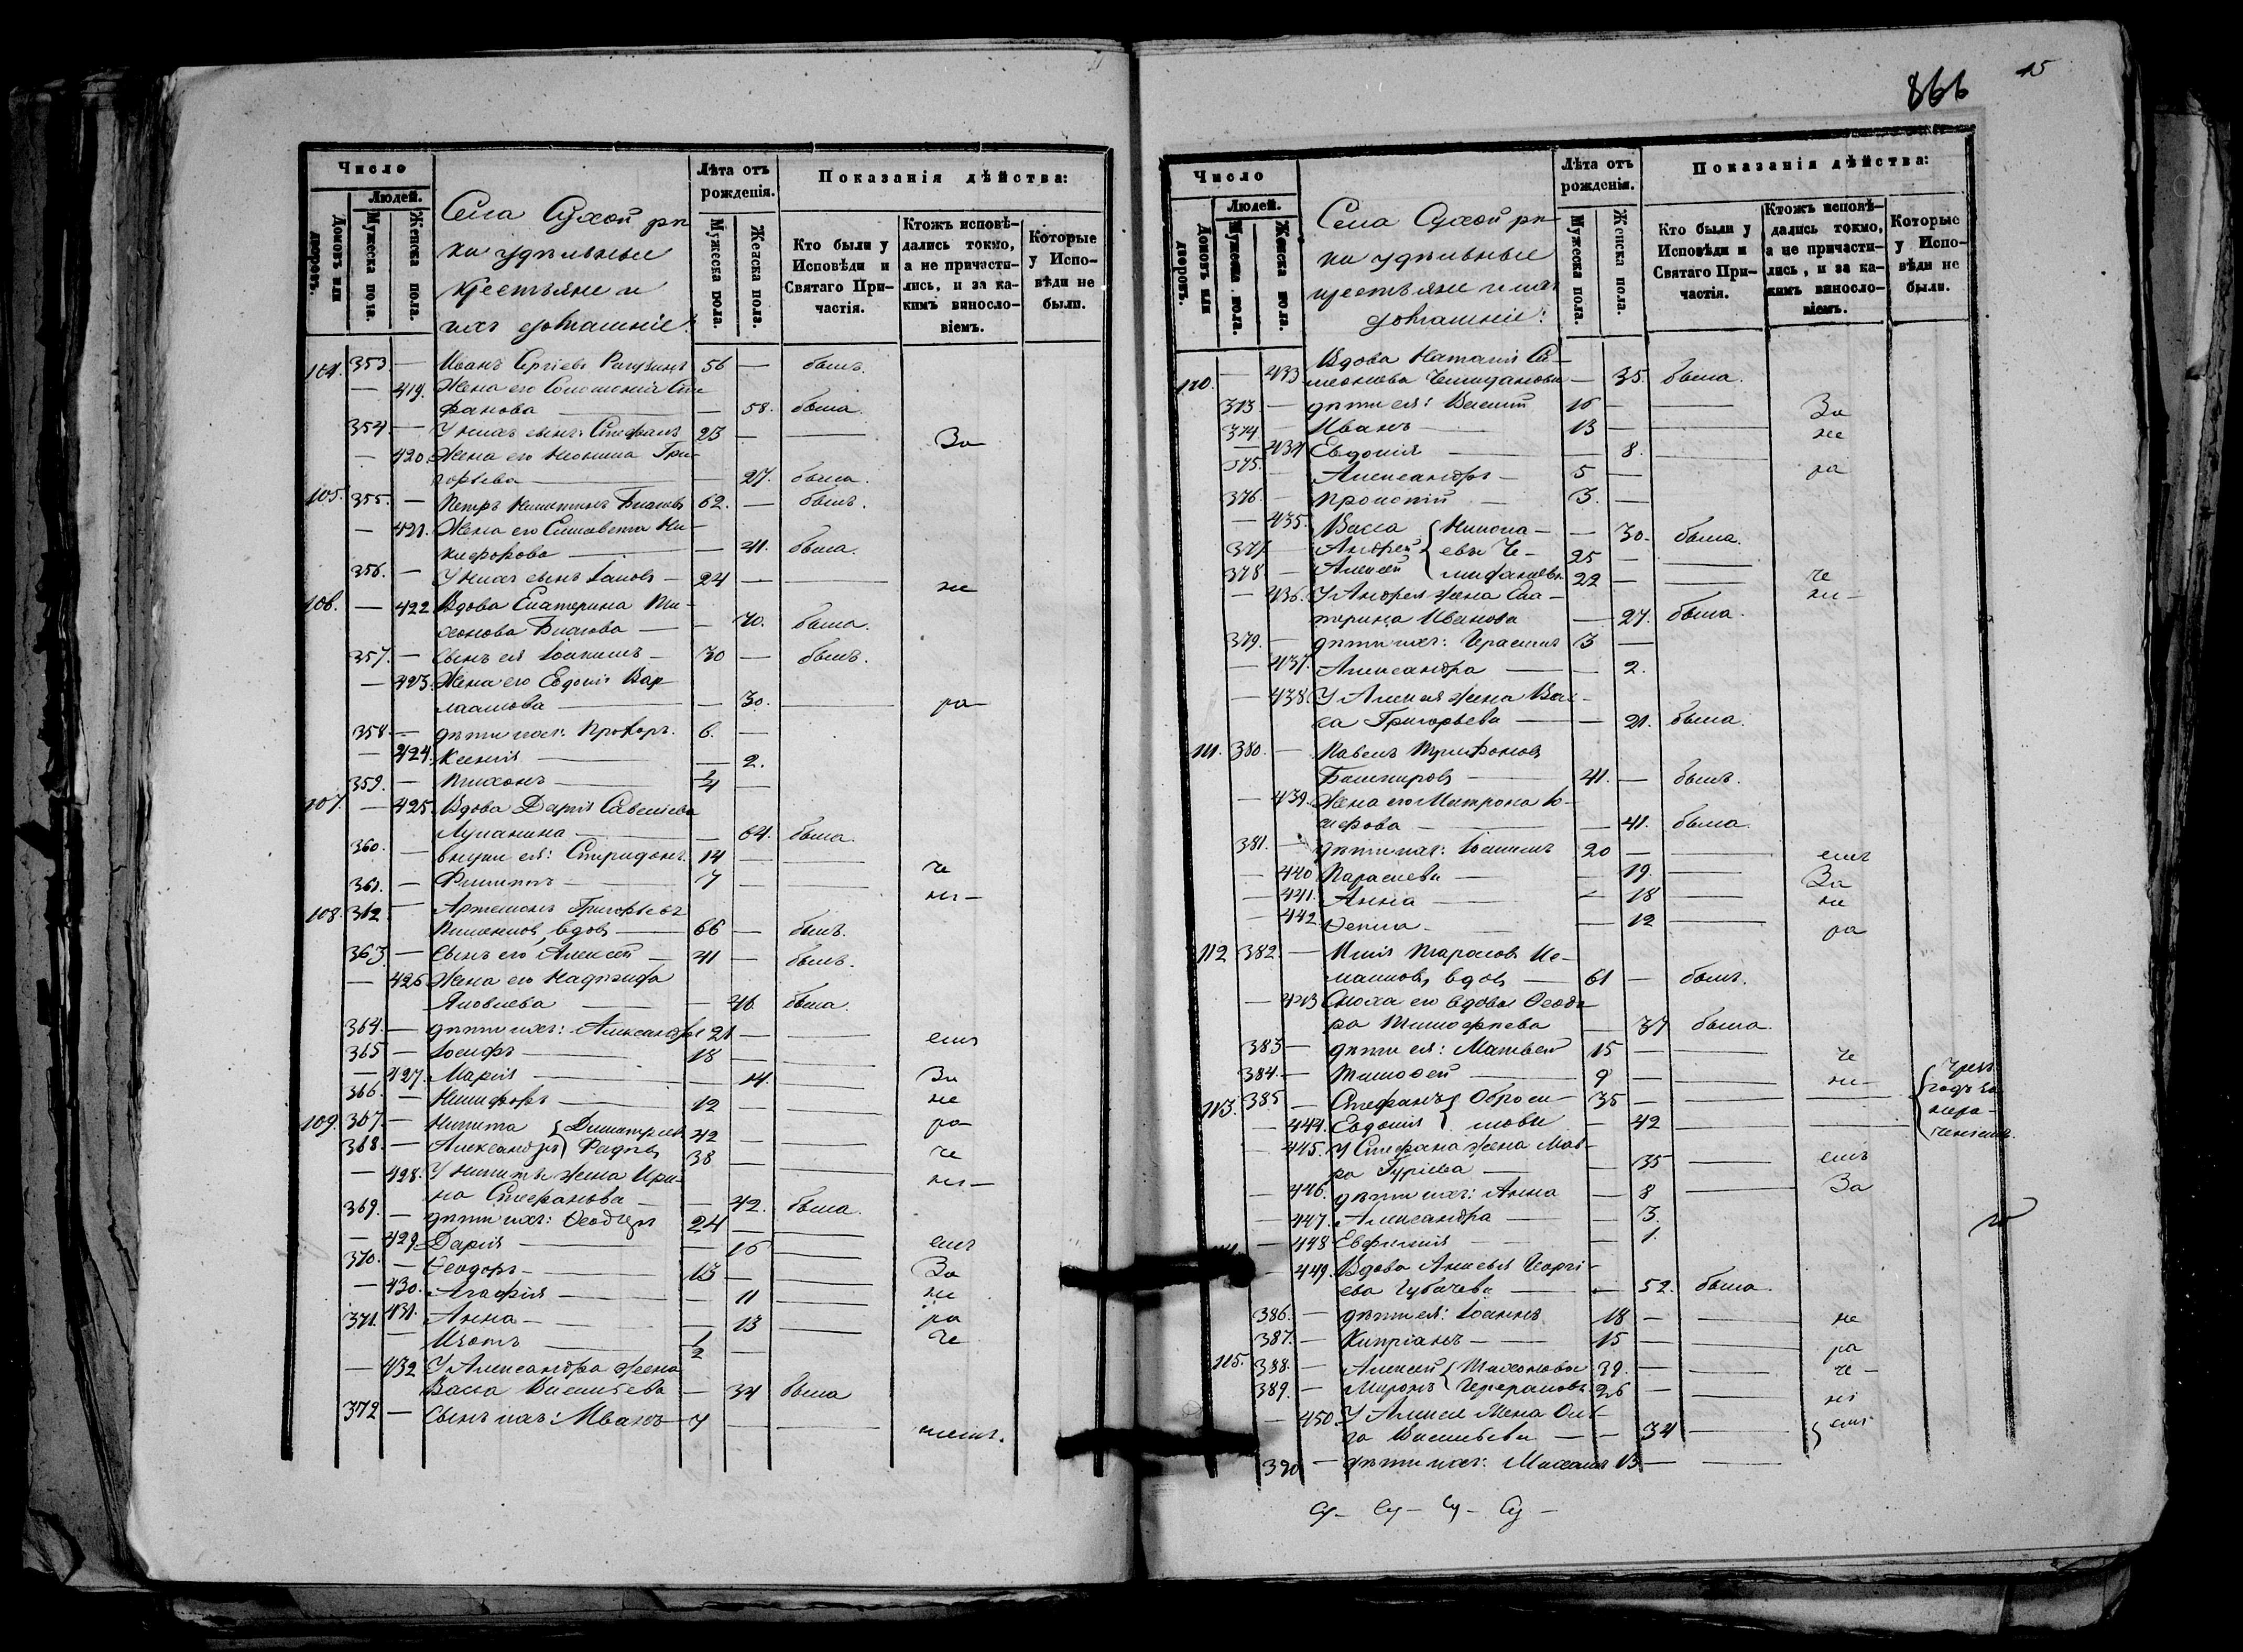 Число
Людей.
Домовъ или дворовъ.
Мужеска пола.
Женска пола.
Села Сухой рѣч
ки удѣльные
крестьяне и
ихъ домашніе:
Лѣта отъ рожденія.
Мужеска пола.
Женска пола.
Показанія дѣйства:
Кто были у Исповѣди и Святаго Причастія.
Ктожъ исповѣдались токмо, а не причастились, и за какимъ винословіемъ.
Которые у Исповѣди не были.
104. 353 — Иванъ Сергіевъ 56 — былъ.
— 419. Жена его Соломонія Сте-
фанова — — 58. была.
354 — У нихъ сынъ: Стефанъ 23 — — За
— 420 Жена его Неонила Гри-
горьева — — 27. была.
105. 355. — Петръ Никитинъ 62. — былъ.
— 421. Жена его Елисавета Ни-
кифорова — — 41. была.
356. — У нихъ сынъ Іаковъ — 24 — — не
106. — 422 Вдова Екатерина Ти-
хонова — — 70. была.
357. — Сынъ ея Іоакимъ — 30 — былъ.
— 423. Жена его Евдокія Вар-
лаамова — — 30. — ра—
358. — дѣти ихъ: Прохоръ. 6. —
— 424. Ксенія — — 2.
359. — Тихонъ — 1/4 —
107. — 425. Вдова Дарія Савельева
— — 64. была.
360. — внуки ея: Спиридонъ. 14 — — че
361. — Филиппъ — 7 — — ні—
108. 362 — Артемонъ Григорьевъ
вдовъ — 66 — былъ.
363 — Сынъ его Алексей — 41 — былъ.
— 426 Жена его Надежда
Яковлева — — 46. была.
364. — дѣти ихъ: Александръ 21 — — емъ
365 — Іосифъ — 18 — —
— 427. Марія — — 14. — За
366. — Никифоръ — 12 — — не
109. 367. — Никита { Димитріевы 42 — — ра—
368. — Александръ } 38 — — че
— 428. У Никиты жена Ири- ні—
на Стефанова — — 42. была.
369. — дѣти ихъ: Ѳеодоръ 24 — —
— 429. Дарія — — 16 — емъ
370. — Ѳеодоръ — 13 — — За
— 430. Агафія — — 11 — не
431. Анна — — 13 — ра
371. — Изотъ — 1/2 — че
— 432 У Александра жена
Васса Васильева — — 34 была
372 — Сынъ ихъ: Иванъ — 7 — — ніемъ.
866
15
Число
Людей.
Домовъ или дворовъ.
Мужеска пола.
Женска пола.
Села Сухой рѣч-
ки удѣльные
крестьяне и ихъ
домашніе:
Лѣта отъ рожденія.
Мужеска пола.
Женска пола.
Показанія дѣйства:
Кто были у Исповѣди и Святаго Причастія.
Ктожъ исповѣдались токмо, а не причастились, и за какимъ винословіемъ.
Которые у Исповѣди не были.
110. — 433 Вдова Наталія Си-
меонова — 35. была.
373 — дѣти ея: Василій 16 — — За
374 — Иванъ — 13 — — не
— 434 Евдокія — — 8. —
375. — Александръ — 5 — ра
376. — Прокопій — 3. —
— 435. Васса { Никола- — 30. была.
377. — Андрей { евы Че- 25 — —
378. — Алексей { 22 — — че
— 436. У Андрея жена Ека- ні—
терина Иванова — 27. была.
379. — дѣти ихъ: Герасимъ 3 —
— 437. Александра — — 2.
— 438. У Алексея жена Вас-
са Григорьева — — 21. была.
111. 380. — Павелъ Трифоновъ
Башкировъ — 41. — былъ.
— 439. Жена его Матрона Іо-
сифова — — 41. была.
381. — дѣти ихъ: Іоакимъ 20 — — емъ
— 440 Параскева — — 19. — За
— 441. Анна — — 18 — не
— 442. Ѳекла — — 12 — ра
112 382. — Илія Тарасовъ
вдовъ — 61 — былъ.
— 443 Сноха его вдова Ѳеодо-
ра Тимофеева — 37 была.
383 — дѣти ея: Матвей 15 — — че
384. — Тимоѳей — 9 — — ні—
113. 385 — Стефанъ { Аброси- 35 — — —
— 444. Евдокія { мовы — 42 — —
{ чрезъ
годъ за
нера-
ченіемъ.
— 445. У Стефана жена Мав- емъ
ра Гуріева — — 35 —
— 446. дѣти ихъ: Анна — 8 — За
— 447. Александра — — 3.
— 448 Евфимія — — 1.
— 449. Вдова Георгі-
ева Губачева — — 52. была.
386. — дѣти ея: Іоаннъ 18 — — не
387. — Кипріанъ — 15 — — ра
115. 388. — Алексей { Тихоновы 39. — — че—
389. — Миронъ { 26 — — ні
— 450. У Алексея Жена Оль-
га Васильева — — 34 — } емъ
390 — дѣти ихъ: Михаилъ 13 — —